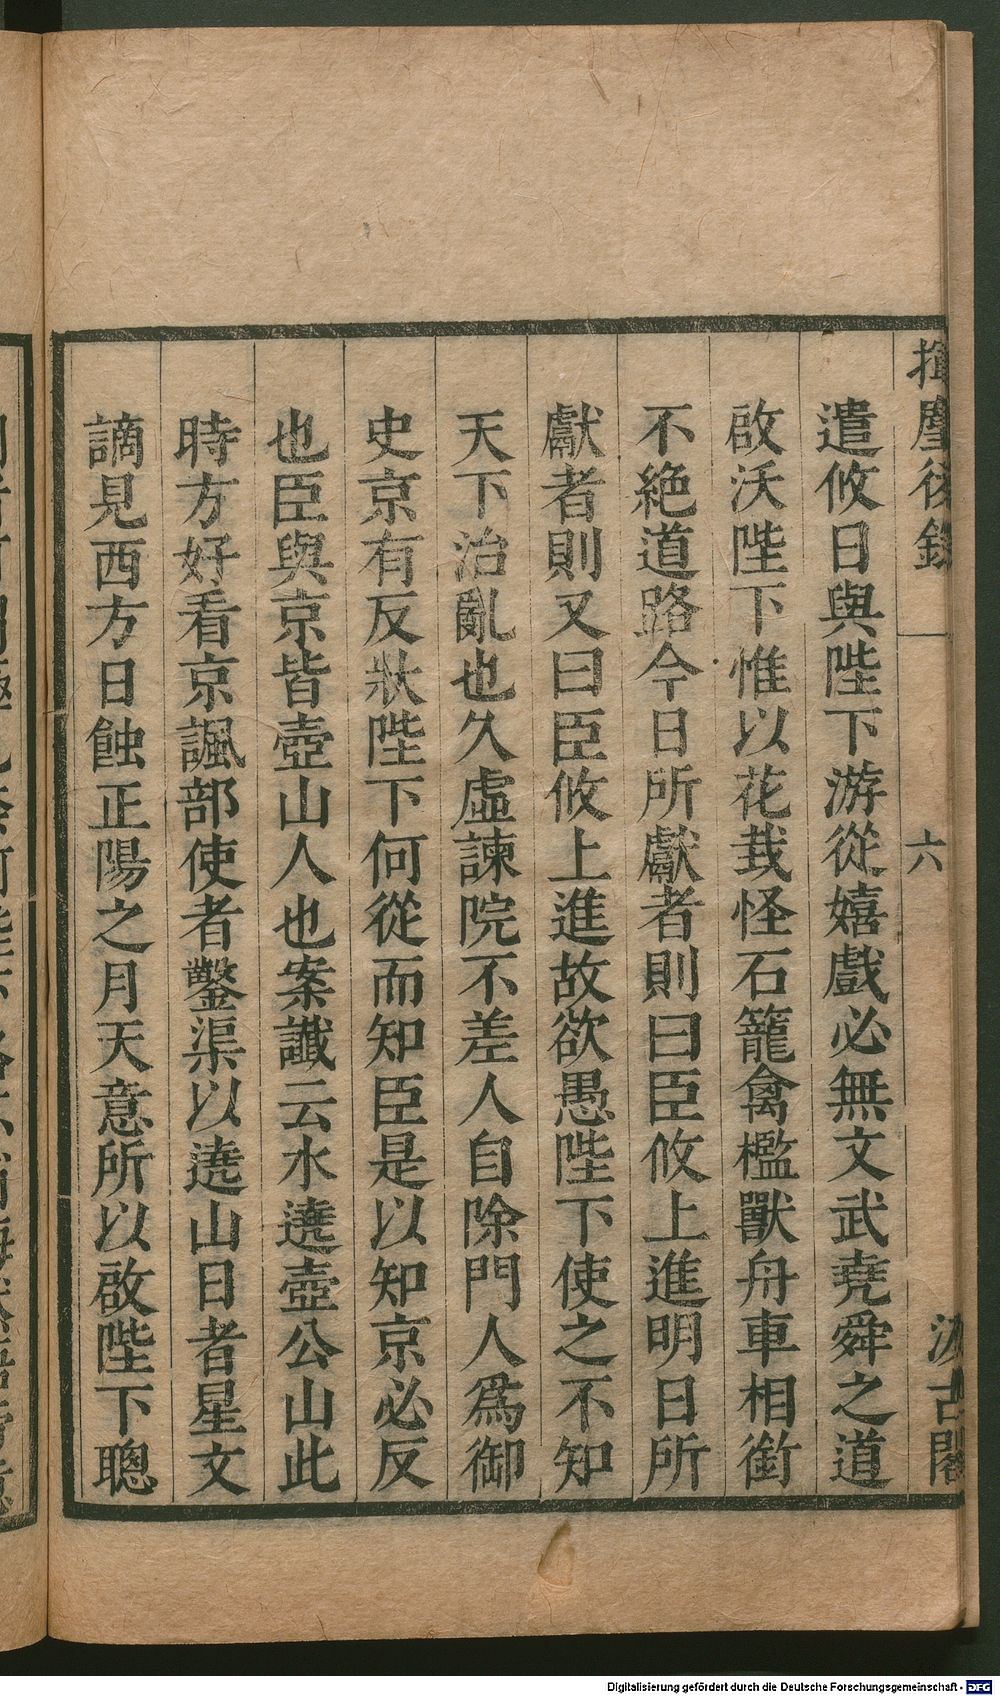 揮麈後錄
六
汲古閣
遣攸日與陛下游從嬉戲必無文武堯舜之道
啟沃陛下惟以花栽怪石籠禽檻獸舟車相銜
不絕道路今日所獻者則曰臣攸上進明日所
獻者則又曰臣攸上進故欲愚陛下使之不知
天下治亂也久虛諫院不差人自除門人為御
史京有反狀陛下何從而知臣是以知京必反
也臣與京皆壺山人也案讖云水遶壺公山此
時方好看京諷部使者鑿渠以遶山日者星文
謫見西方日蝕正陽之月天意所以啟陛下聰
Digitalisierung gefördert durch die Deutsche Forschungsgemeinschaft - DFG